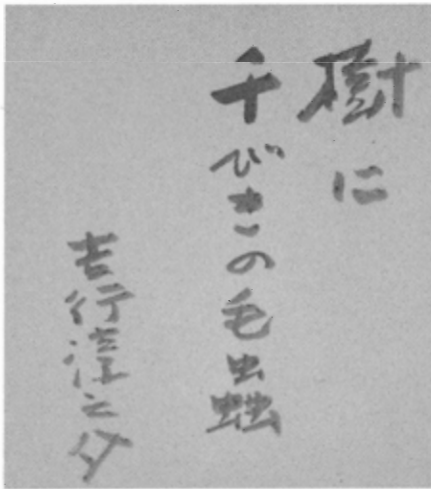 樹に
千びきの毛蟲
吉行淳之介